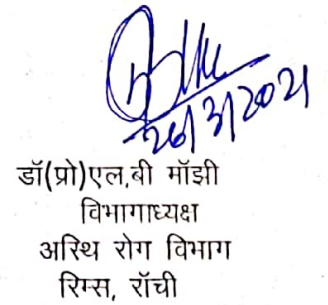 26/3/2021
डॉ(प्रो)एल.बी मॉझी
विभागाध्यक्ष
अस्थि रोग विभाग
रिम्स, रॉची